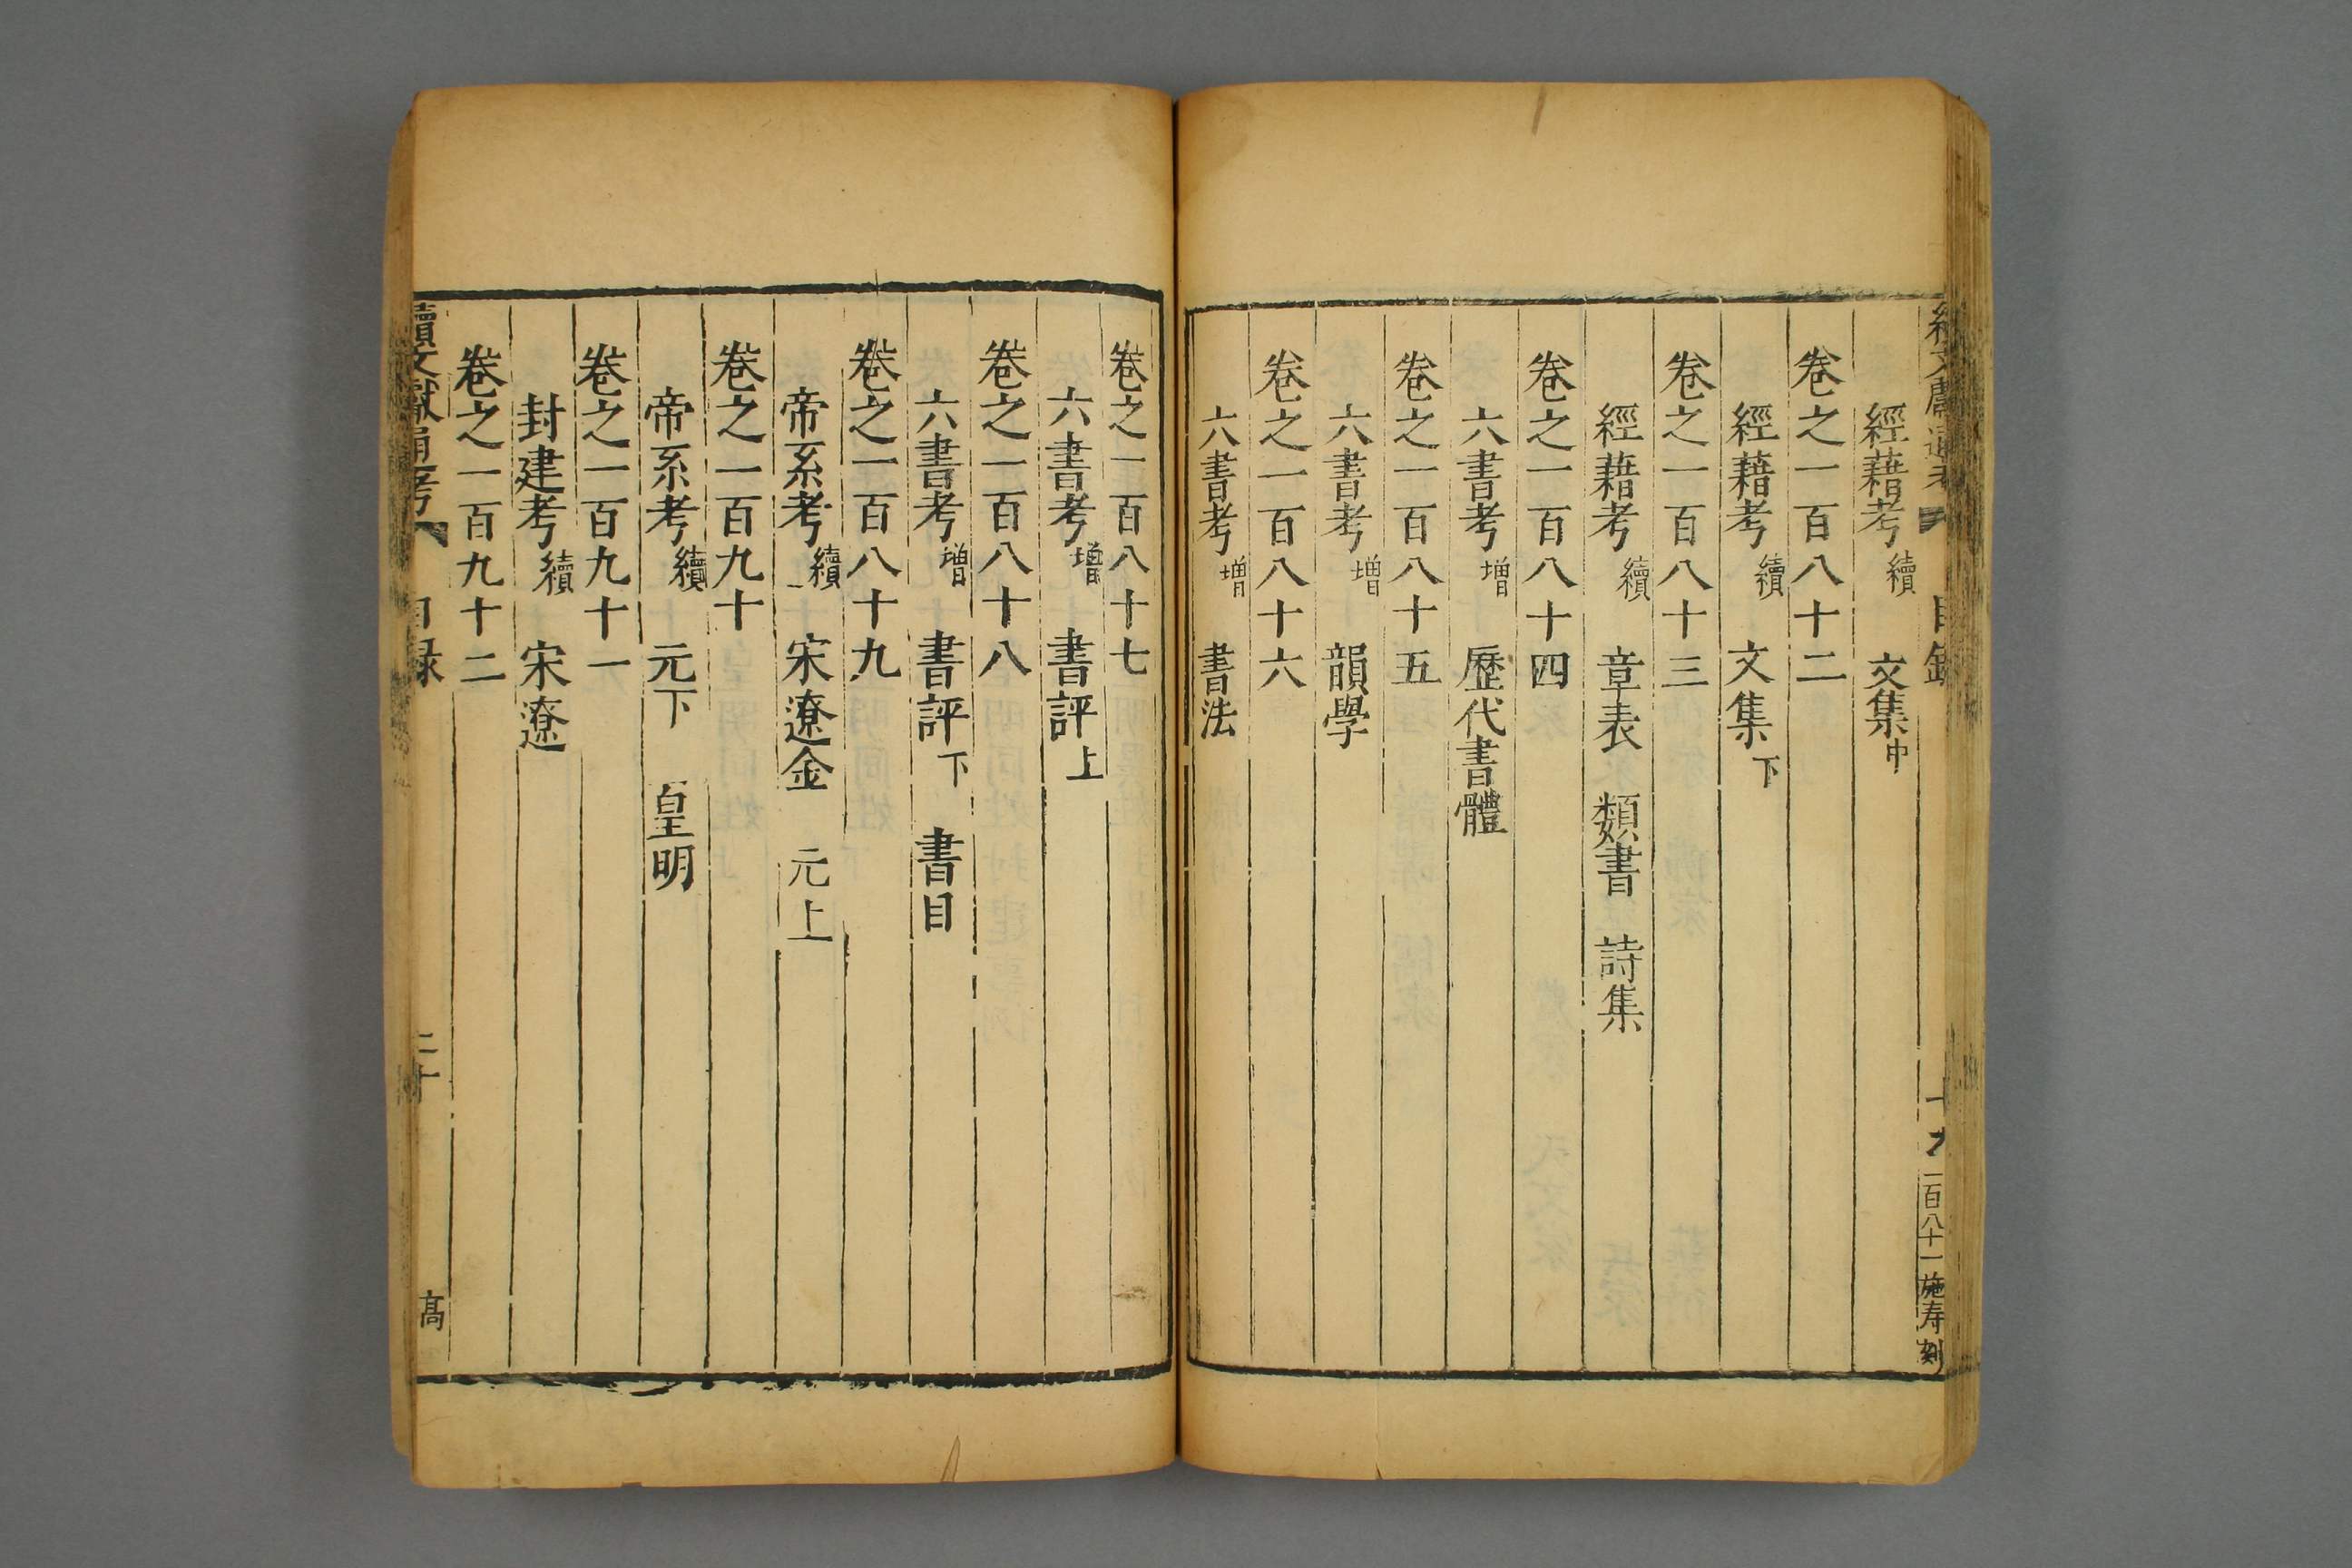 續文獻通考 目錄 十九 一百八十一 施寿刻
經藉考 續 文集 中
卷之一百八十二
經藉考 續 文集 下
卷之一百八十三
經藉考 續 章表 類書 詩集
卷之一百八十四
六書考 增 歷代書體
卷之一百八十五
六書考 增 韻學
卷之一百八十六
六書考 增 書法
卷之一百八十七
六書考 增 書評 上
卷之一百八十八
六書考 增 書評 下 書目
卷之一百八十九
帝系考 續 宋遼金 元上
卷之一百九十
帝系考 續 元下 皇明
卷之一百九十一
封建考 續 宋遼
卷之一百九十二
續文獻通考 目録 二十 髙